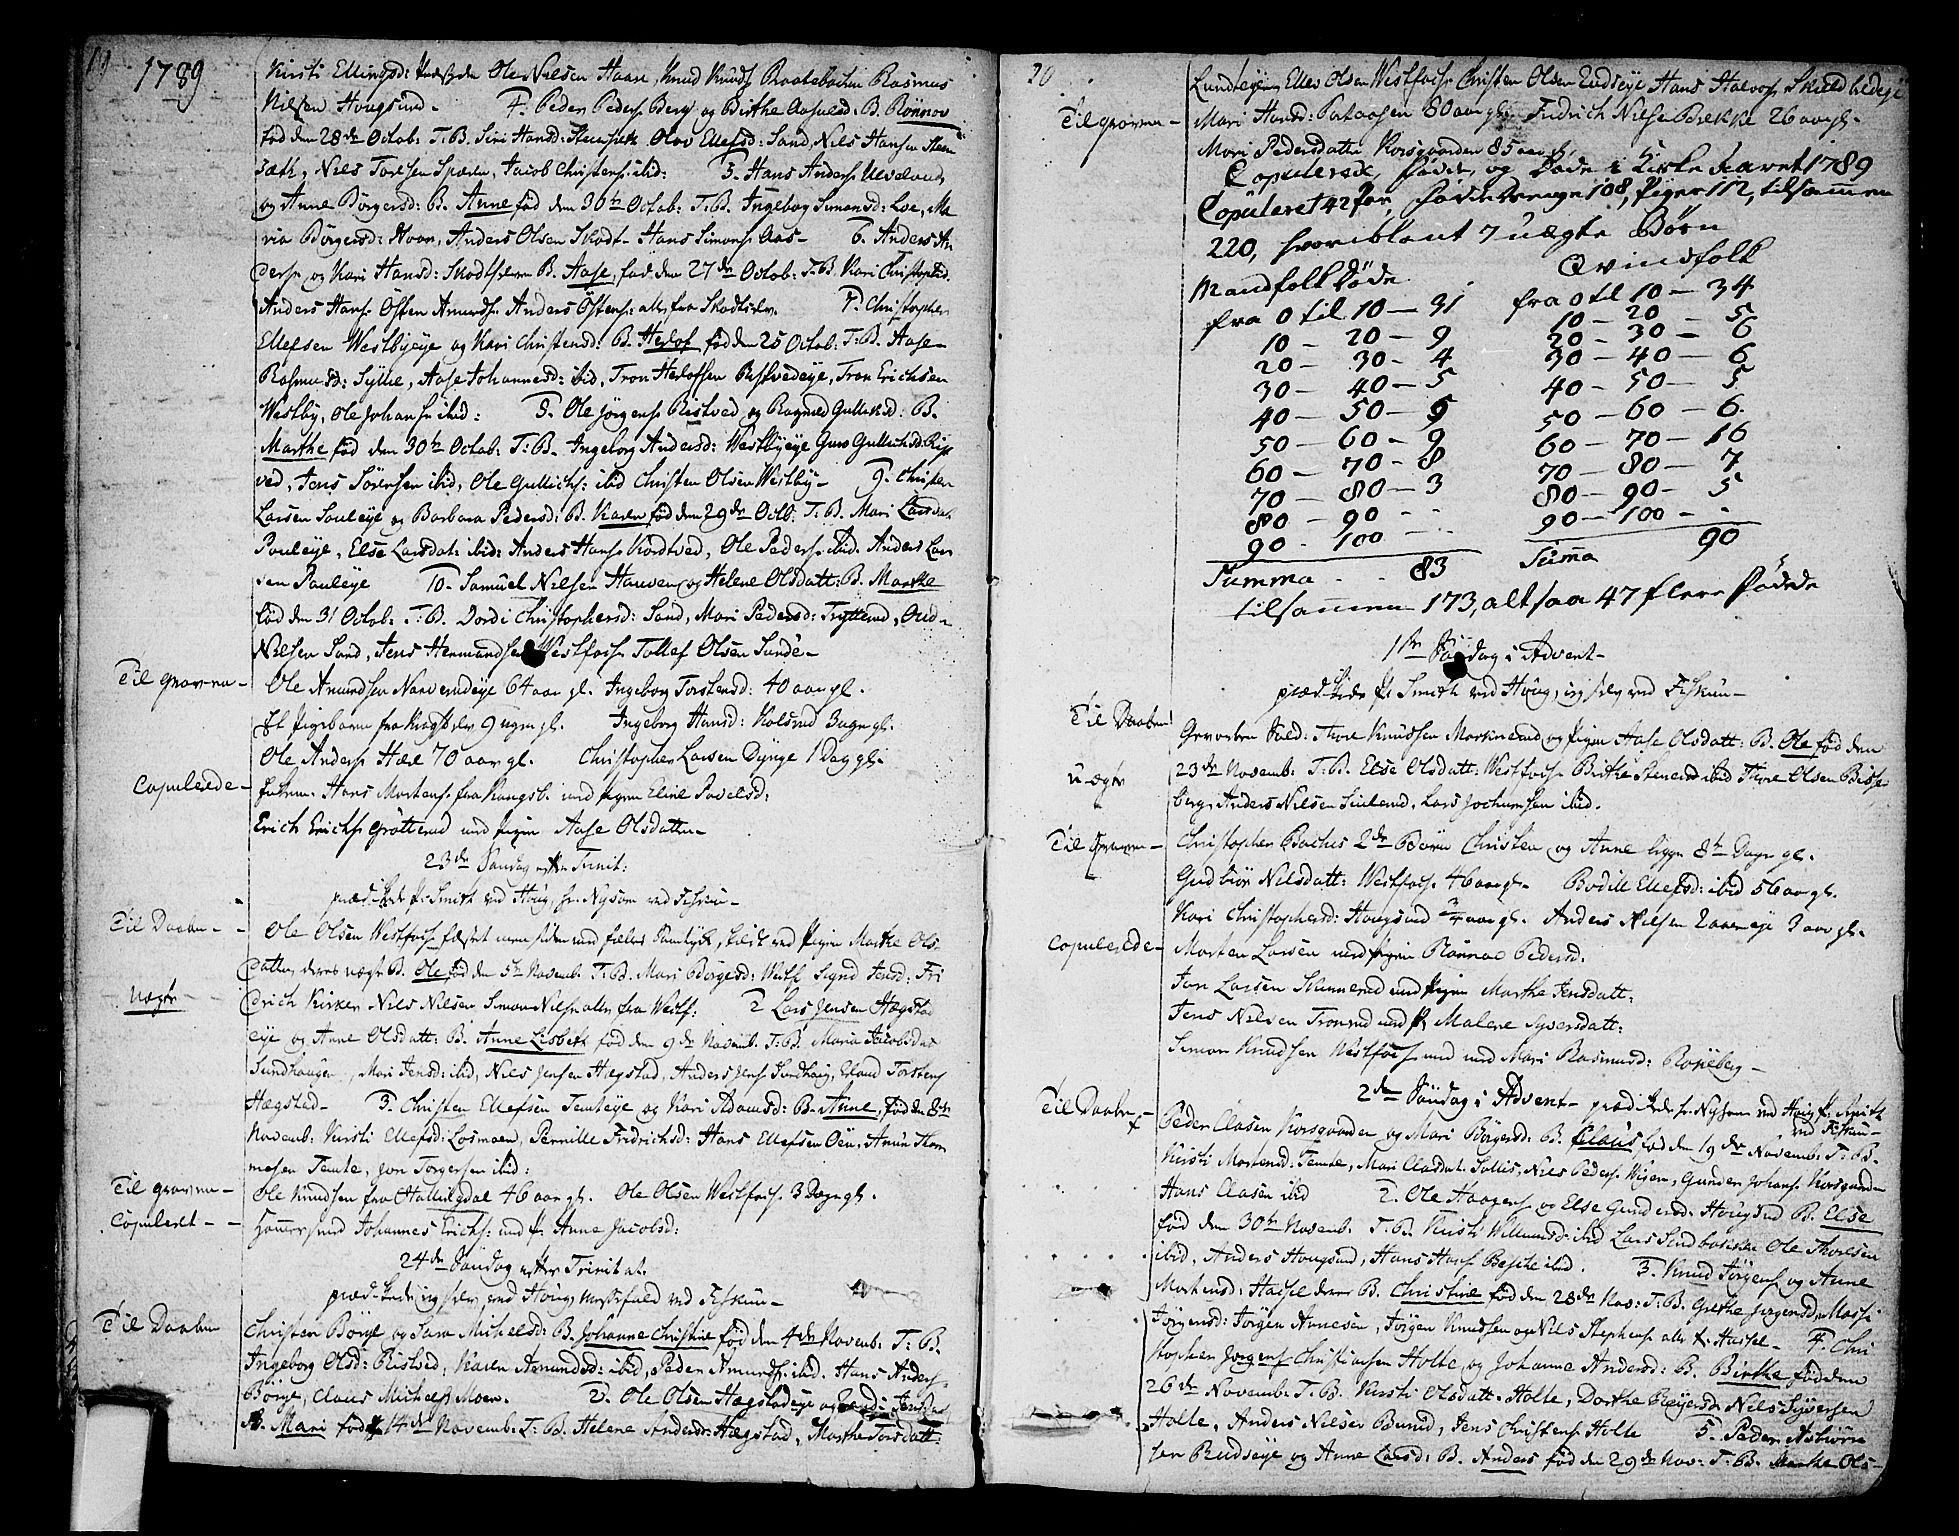 19
1789
Kirsti Ellingsd: Ole Nielsen Haare, Knud Knuds: Rasmus
Nielsen Hougsund - 4. Peder Peders: Berg og Birthe Aaseldsd: B. Rönnov
fød den 28de Octob: T. B. Siri Hansd: Olov Ellefsd: Sand, Nils Hansen Stem
sæth, Niels Torsen Jacob Christens: ibid: 5. Hans Anders: Ulveland
og Anne Börgersd: B. Anne fød den 30te Octob: T. B. Ingeborg Simonsd: Loe, Ma
ria Börgersd: Hvam, Anders Olsen Skodt- Hans Simons: Aas- 6. Anders An
ders: og Kari Hansd: B. Aase, fød den 27de Octob: T. B. Kari Christophd.
Anders Hans: Östen Amunds: Anders Östens: alle fra 7. Christopher
Ellefsen Westbyeye og Kari Christensd: B. Herlof fød den 25 Octob: T. B. Aase
Rasmusd: Sylle, Aase Johannesd: ibid, Tron Herlofsen Ristvedeye, Tron Erichsen
Westby, Ole Johans: ibid: 8. Ole Jörgens: Ristved og Ragnild Gullichsd: B.
Marthe fød den 30te Octob: T: B. Ingeborg Andersd: Westbyeye Guro Gullichsd: Rist
ved, Jens Sörensen ibid, Ole Gullichs: ibid Christen Olsen Westby- 9. Christen
Larsen Pouleye og Barbara Pedersd: B. Karen fød den 29de Octb: T. B. Mari Larsdat
Pouleye, Else Larsdat: ibid: Anders Hans: Ole Peders: ibid. Anders Lar
sen Pauleye 10. Samuel Nielsen Hauven og Helene Olsdatt: B. Marthe
fød den 31 Octob: T. B. Dordi Christophersd: Sand, Mari Pedersd: Tryterud, Oud-
Nielsen Sand, Jens Hermandsen Westfos: Tollef Olsen Sunde-
Til Gravne- Ole Amundsen Narverudeye 64 aar gl. Ingeborg Torstensd: 40 aar gl.
Et Pigebarn fra 9 ugr gl. Ingeborg Hansd: Kolsrud 3 ugr gl.
Ole Anders: Hæe 70 aar gl. Christopher Larsen Dynge 1 Dag gl-
Copulerede- Hans Mortens: fra Kongsb. med Pigen Eline Povelsd:
Erich Erichs: Grötterud med Pigen Aase Olsdatter-
23de Söndag efter Trinit:
præd: Smith ved Houg, Hr. Nysom ved Fiskum-
Til Daaben- Ole Olsen Westfos: med Pigen Marthe Ols
datter, deres uægte B. Ole fød den 5te Novemb. T. B. Mari Börgersd: Westf: Sigrid Jensd: Fri
Uægte- drich Kirker Niels Nilsen Simon Nils: alle fra Westf: 2 Lars Jensen Hægstad
eye og Anne Olsdatt: B. Anne Lisbeth fød den 9de Novemb. T. B. Maria Jacobsdat
Sundhaugen, Mari Jensd: ibid, Niels Jensen Hægstad, Anders Jens: Sundhaug, Eland Torstens
Hægstad- 3. Christen Ellefsen Temteye og Kari Adamsd: B. Anne, fød den 8de
Novemb: Kirsti Ellefsd: Losmoen, Pernille Fridrichsd: Hans Ellefsen Öen, Amun Thom
mesen Temte, Jon Torgersen ibid:
Til Gravne- Ole Knudsen fra Hallingdal 46 aar gl. Ole Olsen Westfos: 3 Dage gl.
Copuleret- Johannes Erichs: med P. Anne Jacobsd:
24de Söndag efter Trinitat.
ved Houg, Messefald ved Fiskum-
Til Daaben Christen Börge og Sara Michelsd: B. Johanne Christine fød den 4de Novemb: T: B.
Ingeborg Olsd: Ristved, Karen Amundsd: ibid, Peder Amunds: ibid. Hans Anders:
Börge, Claus Michels: Moen. 2. Ole Olsen Hægstadeye og Jensdat
B. Mari fød 14de Novemb: T. B. Helene Andersd: Hægstad, Marthe Torsdatt:
20
Lundteigen Ellef Olsen Westfos: Christen Olsen Rudseye Hans Halvors:
Til Gravne- Mari Hansd: 80 aar gl: Fridrich Nils: Bække 26 aar gl-
Mari Pedersdatter Korsgaarden 85 aar gl.
Copulerede, Födde, og Döde i Kirke Aaret 1789
Copuleret 42 Par, Födde Drenge 108, Piger 112, tilsammen
220, hvoriblant 7 uægte Börn
Mandfolk Döde
fra 0 til 10 - 31
10 - 20 - 9
20 - 30 - 4
30 - 40 - 5
40 - 50 - 5
50 - 60 - 9
60 - 70 - 8
70 - 80 - 3
80 - 90 - -
90 - 100 -
Summa - - 83
Qvindfolk
fra 0 til 10 - 34
10 - 20 - 5
20 - 30 - 6
30 - 40 - 6
40 - 50 - 5
50 - 60 - 6
60 - 70 - 16
70 - 80 - 7
80 - 90 - 5
90 - 100 - -
Summa 90
tilsammen 173, altsaa 47 flere Födde
1ste Söndag i Advent-
Smith ved Houg, ved Fiskum-
Til Daaben Thore Knudsen og Pigen Aase Olsdatt: B. Ole fød den
uægte 23de Novemb: T. B. Else Olsdatt: Westfos: Birthe Stensd: ibid Thore Olsen
berg, Anders Nilsen Lars Jochumsen ibid.
Til Gravne- Christopher Bachus 2de Börn Christen og Anne begge 8te Dage gl.
Gudbiör Nilsdatt: Westfos: 46 aar gl- Bodill Ellefsd: ibid 56 aar gl.
Kari Christophersd: Hougsund 3/4 aar gl. Anders Nilsen 3 aar gl.
Copulerede- Morten Larsen med Pigen Rönnoe Pedersd:
Jan Larsen Skinnerud med Pigen Marthe Jensdatt:
Jens Nilsen Tronrud med P. Malene Syversdatt:
Simon Knudsen Westfos: med Mari Rasmusd:
2den Söndag i Advent- Nysom ved Houg, Smith
ved Fiskum-
Til Daaben Peder Clasen Korsgaarden og Mari Börgersd: B. Claus fød den 19de Novemb: T. B.
Kirsti Mortensd: Temte, Mari Clasdat: Niels Peders: Gunder Johans: Korsgaarden
Hans Clasen ibid 2. Ole Haagens: og Else Gundersd: Hougsud B. Else
fød den 30te Novemb. T. B. Kirsti Willumsd: ibid Lars Sindbokker Ole Thoresen
ibid, Anders Hougsund, Hans Hans: ibid. 3. Knud Jörgens: og Anne
Mortensd: Hassel deres B. Christine fød den 28de Nov: T. B. Grethe Jörgensd: Massi
Jörgensd: Jörgen Arnesen, Jörgen Knudsen og Niels Stephens: alle Hassel- 4. Chri
stopher Jorgens: Christiansen Holte, og Johanne Andersd: B. Birthe fød den
26de Novemb: T. B. Kirsti Olsdatt: Holte, Dorthe Reyersd: Niels Syversen
Holte, Anders Nilsen Burud, Jens Christens: Holte 5. Peder Asbiörn
sen Rudseye og Anne Larsd: B. Anders fød den 29de Nov: T. B. Marthe Ols-